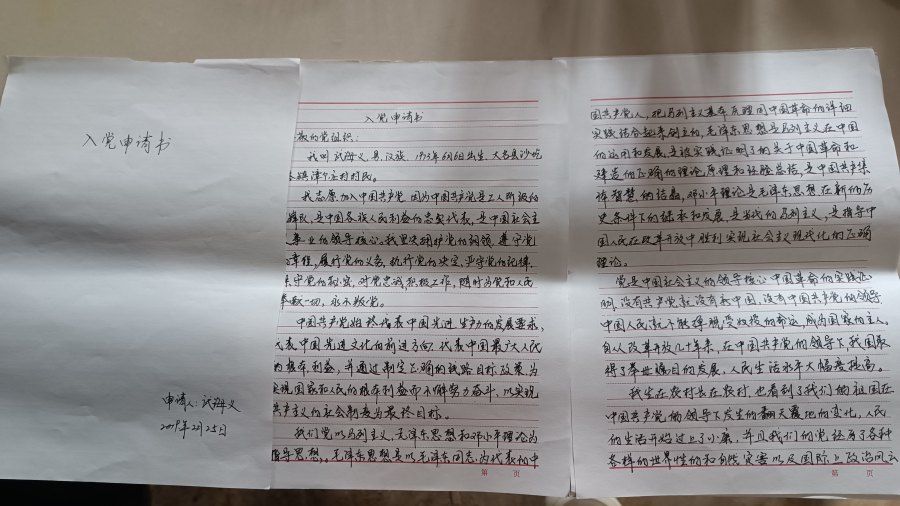 入党申请书
申请人:武海义
2019年2月25日
入党申请书
敬的党组织:
我叫武海义,男,汉族,1973年6月6日出生,大名县沙圪
镇津个庄村村民。
我志愿加入中国共产党,因为中国共产党是工人阶级的
锋队,是中国各族人民利益的忠实代表,是中国社会主
事业的领导核心。我坚决拥护党的纲领,遵守党
章程,履行党的义务,执行党的决定,严守党的纪律,
保守党的秘密,对党忠诚,积极工作,随时为党和人民
牺牲一切,永不叛党。
中国共产党始终代表中国先进生产力的发展要求,
代表中国先进文化的前进方向,代表中国最广大人民
的根本利益,并通过制定正确的路线目标政策,为
实现国家和人民的根本利益而不懈努力奋斗,以实现
共产主义的社会制度为最终目标。
我们党以马列主义,毛泽东思想和邓小平理论为
指导思想,毛泽东思想是以毛泽东同志为代表的中
第 页
国共产党人,把马列主义基本原理同中国革命的详细
实践结合起来创立的,毛泽东思想是马列主义在中国
的运用和发展,是被实践证明了的关于中国革命和
建造的正确的理论原理和经验总结,是中国共产集
体智慧的结晶,邓小平理论是毛泽东思想在新的历
史条件下的继承和发展,是当代的马列主义,是指导中
国人民在改革开放中胜利实现社会主义现代化的正确
理论。
党是中国社会主义的领导核心,中国革命的实践证
明,没有共产党就没有新中国,没有中国共产党的领导
中国人民就不能摆脱受奴役的命运,成为国家的主人。
自从改革开放几十年来,在中国共产党的领导下,我国取
得了举世瞩目的发展,人民生活水平大幅度提高。
我生在农村长在农村,也看到了我们的祖国在
中国共产党的领导下发生的翻天覆地的变化,人民
的生活开始过上了小康,并且我们的党经历了各种
各样的世界性的和自然灾害以及国际上政治风云
第 页